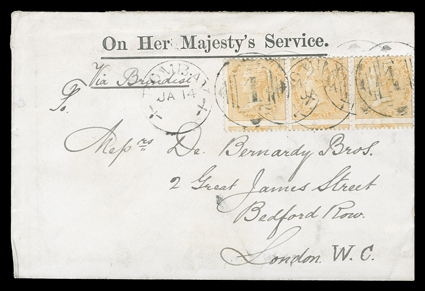 On Her Majesty's Service.
Via Brindisi
BOMBAY
JA 14
To.
Messrs De. Bernardy Bros.
2 Great James Street
Bedford Row.
London. W. C.